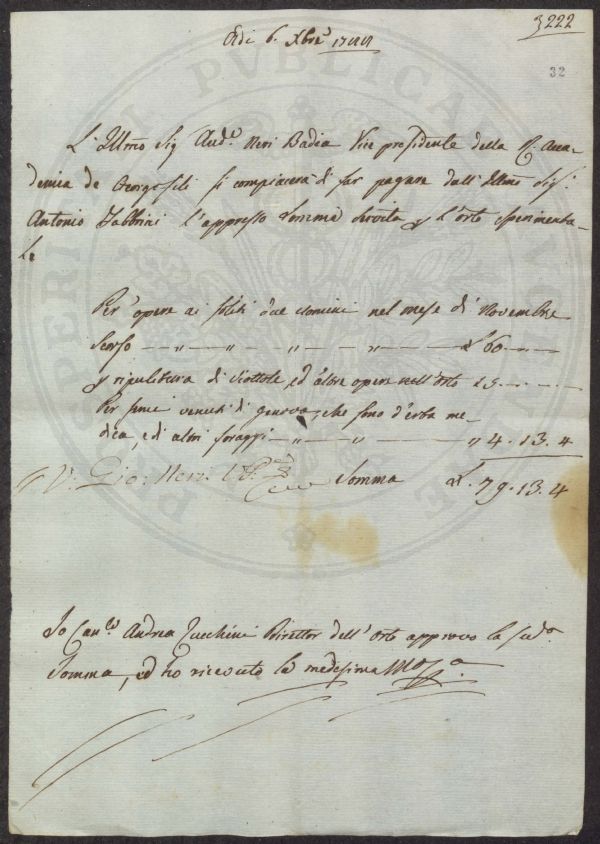 3222
Adi 6. Xbre
32
L'Illmo Sig Aud.e Neri Badia Vice presidente della R. Acca-
demica de Georgofili si compiacerà di far pagare dall'Illmo Sig.
Antonio Fabbrini l'appresso Somma servita p l'orto sperimenta-
le
Per opere ai soliti due uomini nel mese di Novembre
Scorso — " — " — " — " — £ 60. — —
p ripulitura di viottole, ed altre opere nell'orto 15. — —
Per semi venuti di genova, che sono d'erba me-
dica, e di altri foraggi — " — " — " 4. 13. 4
V. Gio: Neri V.P. Somma £. 79. 13. 4
Io Can.co Andrea Zucchini Direttor dell'Orto approvo la sud.a
Somma, ed ho ricevuto la medesima
PROSPERITATI PUBLICAE AUGENDAE